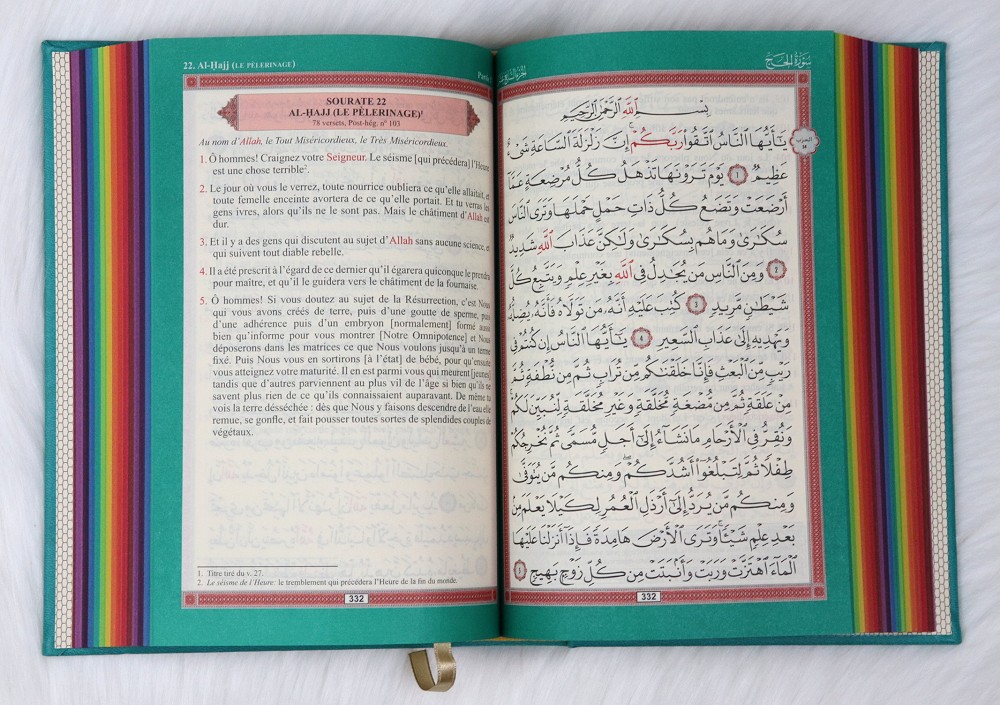 22. Al-Ḥajj (LE PÈLERINAGE)
SOURATE 22
AL-ḤAJJ (LE PÈLERINAGE)¹
78 versets, Post-hég. n° 103
Au nom d'Allah, le Tout Miséricordieux, le Très Miséricordieux.
1. Ô hommes! Craignez votre Seigneur. Le séisme [qui précédera] l'Heure
est une chose terrible².
2. Le jour où vous le verrez, toute nourrice oubliera ce qu'elle allaitait, et
toute femelle enceinte avortera de ce qu'elle portait. Et tu verras les
gens ivres, alors qu'ils ne le sont pas. Mais le châtiment d'Allah est
dur.
3. Et il y a des gens qui discutent au sujet d'Allah sans aucune science, et
qui suivent tout diable rebelle.
4. Il a été prescrit à l'égard de ce dernier qu'il égarera quiconque le prendra
pour maître, et qu'il le guidera vers le châtiment de la fournaise.
5. Ô hommes! Si vous doutez au sujet de la Résurrection, c'est Nous
qui vous avons créés de terre, puis d'une goutte de sperme, puis
d'une adhérence puis d'un embryon [normalement] formé aussi
bien qu'informe pour vous montrer [Notre Omnipotence] et Nous
déposerons dans les matrices ce que Nous voulons jusqu'à un terme
fixé. Puis Nous vous en sortirons [à l'état] de bébé, pour qu'ensuite
vous atteigniez votre maturité. Il en est parmi vous qui meurent [jeunes]
tandis que d'autres parviennent au plus vil de l'âge si bien qu'ils ne
savent plus rien de ce qu'ils connaissaient auparavant. De même tu
vois la terre desséchée : dès que Nous y faisons descendre de l'eau elle
remue, se gonfle, et fait pousser toutes sortes de splendides couples de
végétaux.
1. Titre tiré du v. 27.
2. Le séisme de l'Heure: le tremblement qui précédera l'Heure de la fin du monde.
332
سُورَةُ الحَجّ
بِسْمِ ٱللَّهِ ٱلرَّحْمَٰنِ ٱلرَّحِيمِ
يَٰٓأَيُّهَا ٱلنَّاسُ ٱتَّقُوا۟ رَبَّكُمْ إِنَّ زَلْزَلَةَ ٱلسَّاعَةِ شَىْءٌ
الحزب
عَظِيمٌ ١ يَوْمَ تَرَوْنَهَا تَذْهَلُ كُلُّ مُرْضِعَةٍ عَمَّآ
أَرْضَعَتْ وَتَضَعُ كُلُّ ذَاتِ حَمْلٍ حَمْلَهَا وَتَرَى ٱلنَّاسَ
سُكَٰرَىٰ وَمَا هُم بِسُكَٰرَىٰ وَلَٰكِنَّ عَذَابَ ٱللَّهِ شَدِيدٌ
٢ وَمِنَ ٱلنَّاسِ مَن يُجَٰدِلُ فِى ٱللَّهِ بِغَيْرِ عِلْمٍ وَيَتَّبِعُ كُلَّ
شَيْطَٰنٍ مَّرِيدٍ ٣ كُتِبَ عَلَيْهِ أَنَّهُۥ مَن تَوَلَّاهُ فَأَنَّهُۥ يُضِلُّهُۥ
وَيَهْدِيهِ إِلَىٰ عَذَابِ ٱلسَّعِيرِ ٤ يَٰٓأَيُّهَا ٱلنَّاسُ إِن كُنتُمْ فِى
رَيْبٍ مِّنَ ٱلْبَعْثِ فَإِنَّا خَلَقْنَٰكُم مِّن تُرَابٍ ثُمَّ مِن نُّطْفَةٍ ثُمَّ
مِنْ عَلَقَةٍ ثُمَّ مِن مُّضْغَةٍ مُّخَلَّقَةٍ وَغَيْرِ مُخَلَّقَةٍ لِّنُبَيِّنَ لَكُمْ
وَنُقِرُّ فِى ٱلْأَرْحَامِ مَا نَشَآءُ إِلَىٰٓ أَجَلٍ مُّسَمًّى ثُمَّ نُخْرِجُكُمْ
طِفْلًا ثُمَّ لِتَبْلُغُوٓا۟ أَشُدَّكُمْ وَمِنكُم مَّن يُتَوَفَّىٰ
وَمِنكُم مَّن يُرَدُّ إِلَىٰٓ أَرْذَلِ ٱلْعُمُرِ لِكَيْلَا يَعْلَمَ مِنۢ
بَعْدِ عِلْمٍ شَيْـًٔا وَتَرَى ٱلْأَرْضَ هَامِدَةً فَإِذَآ أَنزَلْنَا عَلَيْهَا
ٱلْمَآءَ ٱهْتَزَّتْ وَرَبَتْ وَأَنۢبَتَتْ مِن كُلِّ زَوْجٍۭ بَهِيجٍ ٥
332